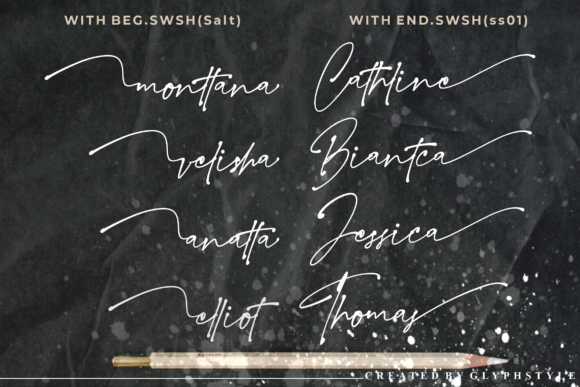 WITH BEG.SWSH(Salt)
WITH END.SWSH(ss01)
monttana
Cathline
velisha
Biantca
anatta
Jessica
elliot
Thomas
CREATED BY GLYPHSTYLE